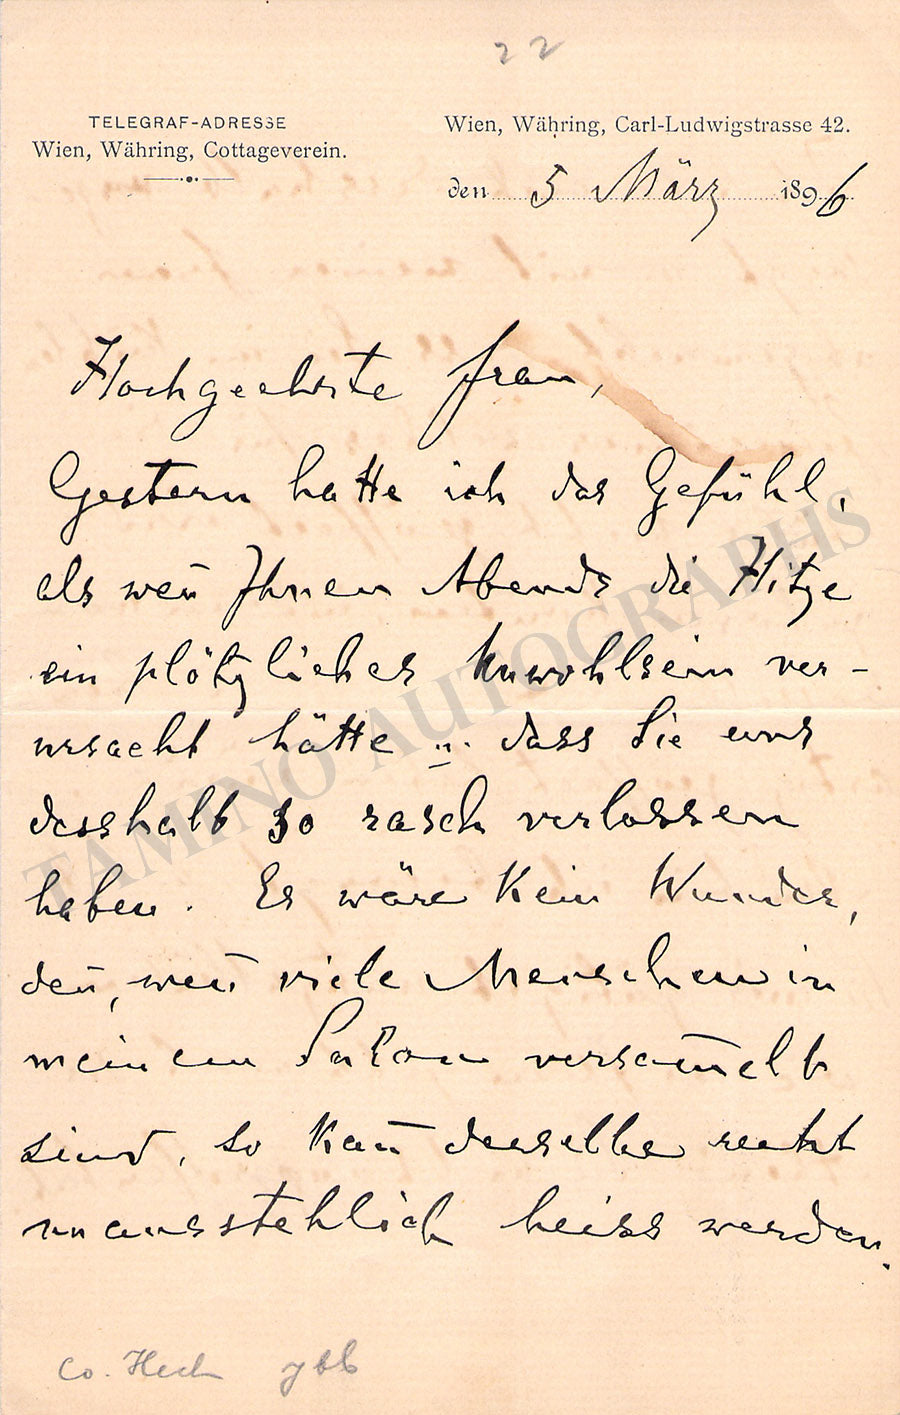 22
TELEGRAF-ADRESSE
Wien, Währing, Cottageverein.
Wien, Währing, Carl-Ludwigstrasse 42.
den 5 März 1896
Hochgeehrte Frau,
Gestern hatte ich das Gefühl,
als wen̄ Ihnen Abends die Hitze
ein plötzliches Unwohlsein ver-
ursacht hätte u. dass Sie uns
desshalb so rasch verlassen
haben. Es wäre kein Wunder,
den̄, wen̄ viele Menschen in
meinem Salon versam̄elt
sind, so kan̄ derselbe recht
unausstehlich heiss werden.
TAMINO AUTOGRAPHS
Co. Hech